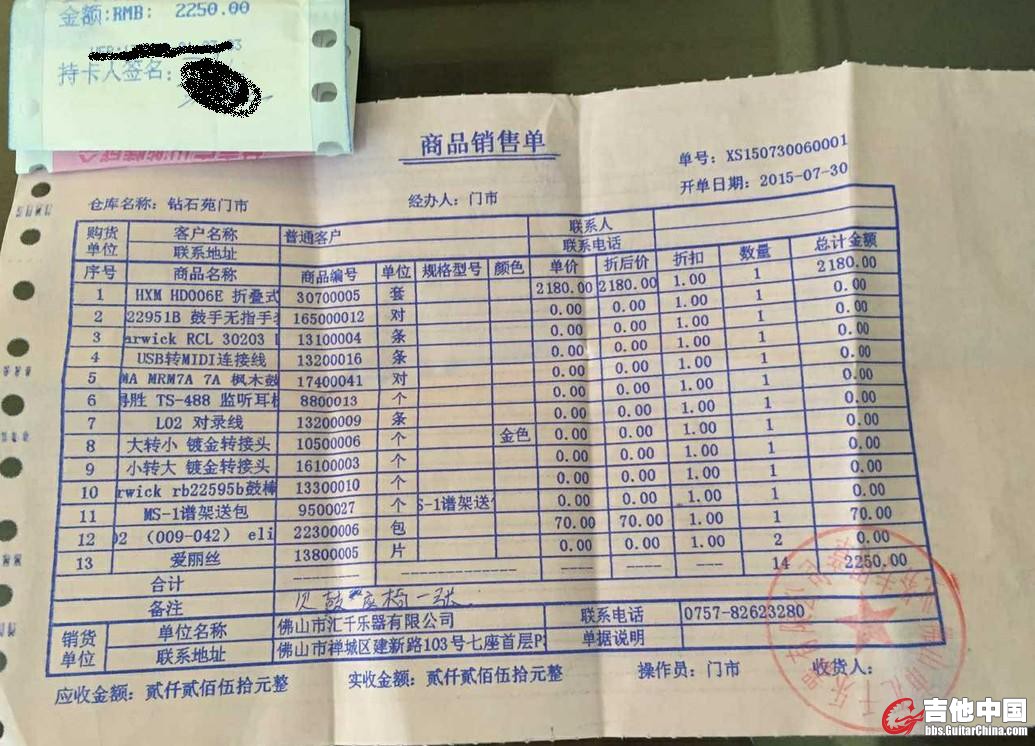 金额:RMB: 2250.00
持卡人签名:
商品销售单
单号: XS150730060001
仓库名称: 钻石苑门市 经办人: 门市 开单日期: 2015-07-30
购货单位 客户名称 普通客户 联系人
联系地址 联系电话
序号 商品名称 商品编号 单位 规格型号 颜色 单价 折后价 折扣 数量 总计金额
1 HXM HD006E 折叠式 30700005 套 2180.00 2180.00 1.00 1 2180.00
2 22951B 鼓手无指手 165000012 对 0.00 0.00 1.00 1 0.00
3 arwick RCL 30203 13100004 条 0.00 0.00 1.00 1 0.00
4 USB转MIDI连接线 13200016 条 0.00 0.00 1.00 1 0.00
5 MA MRM7A 7A 枫木鼓 17400041 对 0.00 0.00 1.00 1 0.00
6 得胜 TS-488 监听耳机 8800013 个 0.00 0.00 1.00 1 0.00
7 L02 对录线 13200009 条 0.00 0.00 1.00 1 0.00
8 大转小 镀金转接头 10500006 个 金色 0.00 0.00 1.00 1 0.00
9 小转大 镀金转接头 16100003 个 0.00 0.00 1.00 1 0.00
10 rwick rb22595b鼓棒 13300010 个 0.00 0.00 1.00 1 0.00
11 MS-1谱架送包 9500027 个 S-1谱架送 0.00 0.00 1.00 1 0.00
12 02 (009-042) eli 22300006 包 70.00 70.00 1.00 1 70.00
13 爱丽丝 13800005 片 0.00 0.00 1.00 2 0.00
合计 14 2250.00
备注 一张
销货单位 单位名称 佛山市汇千乐器有限公司 联系电话 0757-82623280
联系地址 佛山市禅城区建新路103号七座首层P 单据说明
应收金额: 贰仟贰佰伍拾元整 实收金额: 贰仟贰佰伍拾元整 操作员: 门市 收货人:
吉他中国
bbs.GuitarChina.com